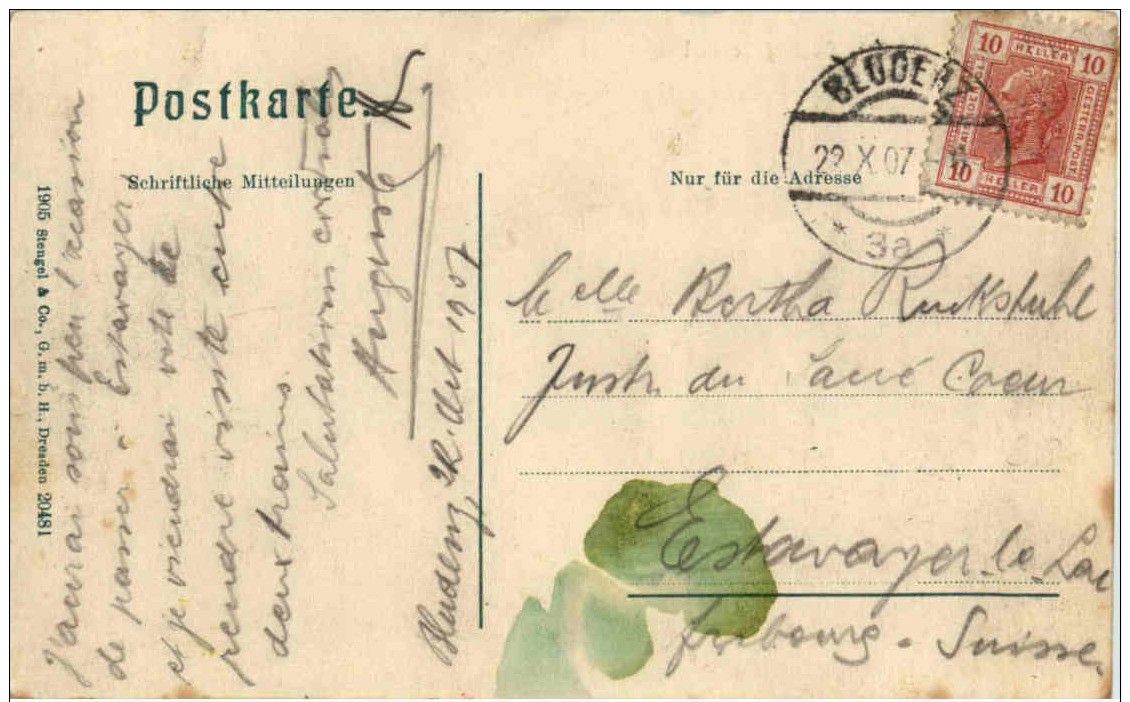 Postkarte.
Schriftliche Mitteilungen
Nur für die Adresse
1905 Stengel & Co., G. m. b. H., Dresden 20481
BLUDENZ
22 X 07
* 3a *
10 HELLER 10
10 HELLER 10
Melle Bertha Ruckstuhl
Instit. du Sacré Coeur
Estavayer-le-Lac
fribourg - Suisse.
J'aurai sous peu l'occasion
de passer à Estavayer
et je viendrai vite te
rendre visite entre
deux trains.
Salutations cordiales
Auguste
Bludenz, 22. Oct 1907